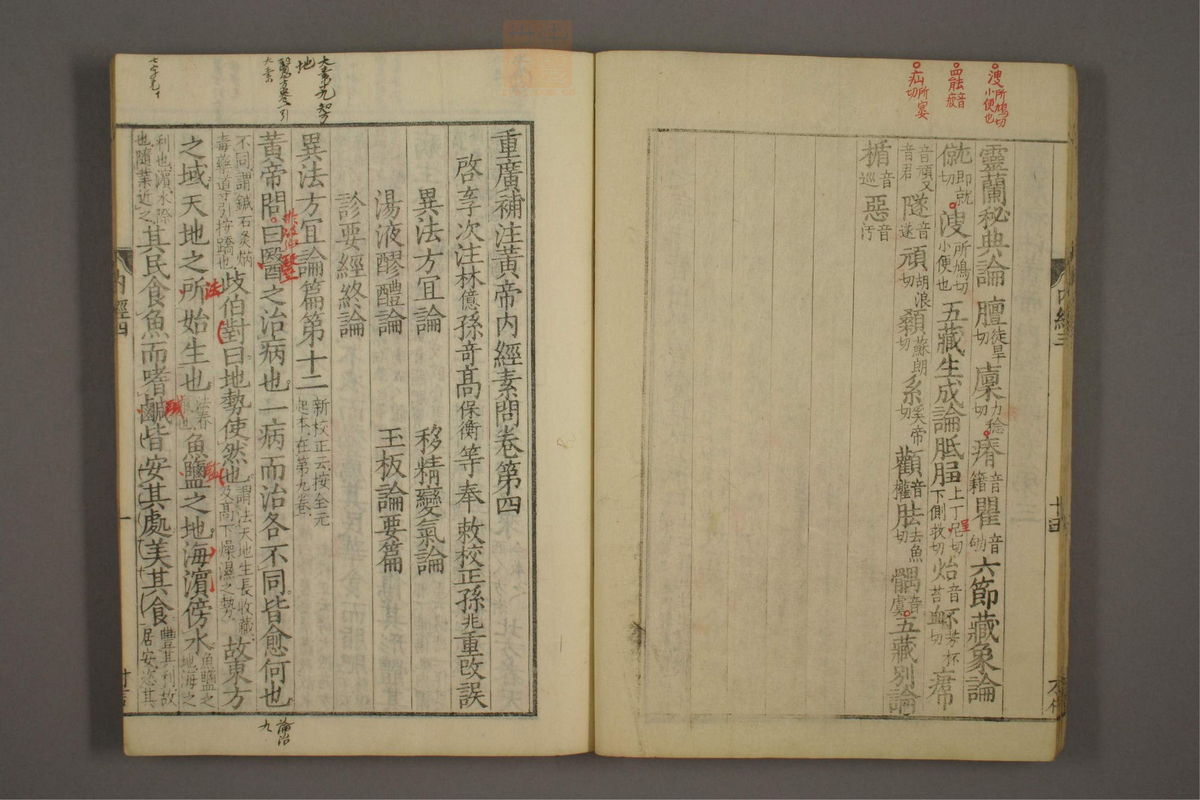 溲所鳩切小便也
靈蘭秘典論 膻徒旱切 廩力稔切 瘠音籍 瞿音劬 六節藏象論
僦即就切 溲所鳩切小便也 五藏生成論 胝
音頵又音君 隧音遂 頏胡浪切 顙蘇朗切 系奚帝切 顴音權 胠去魚切 髃音虞 五藏別論
楯音巡 惡音污
內經三
十四
重廣補注黃帝內經素問卷第四
啓玄子次注林億孫奇高保衡等奉敕校正孫兆重改誤
異法方宜論 移精變氣論
湯液醪醴論 玉板論要篇
診要經終論
異法方宜論篇第十二 新校正云按全元起本在第九卷
黃帝問曰醫之治病也一病而治各不同皆愈何也
不同謂鍼石灸焫毒藥導引按蹻也 歧伯對曰地勢使然也 謂法天地生長收藏及高下燥濕之勢 故東方
之域天地之所始生也 法春也 魚鹽之地海濱傍水 魚鹽之地海之
利也濱水際也隨業近之 其民食魚而嗜鹹皆安其處美其食 豐其利故居安恣其
內經四
一
論治
九